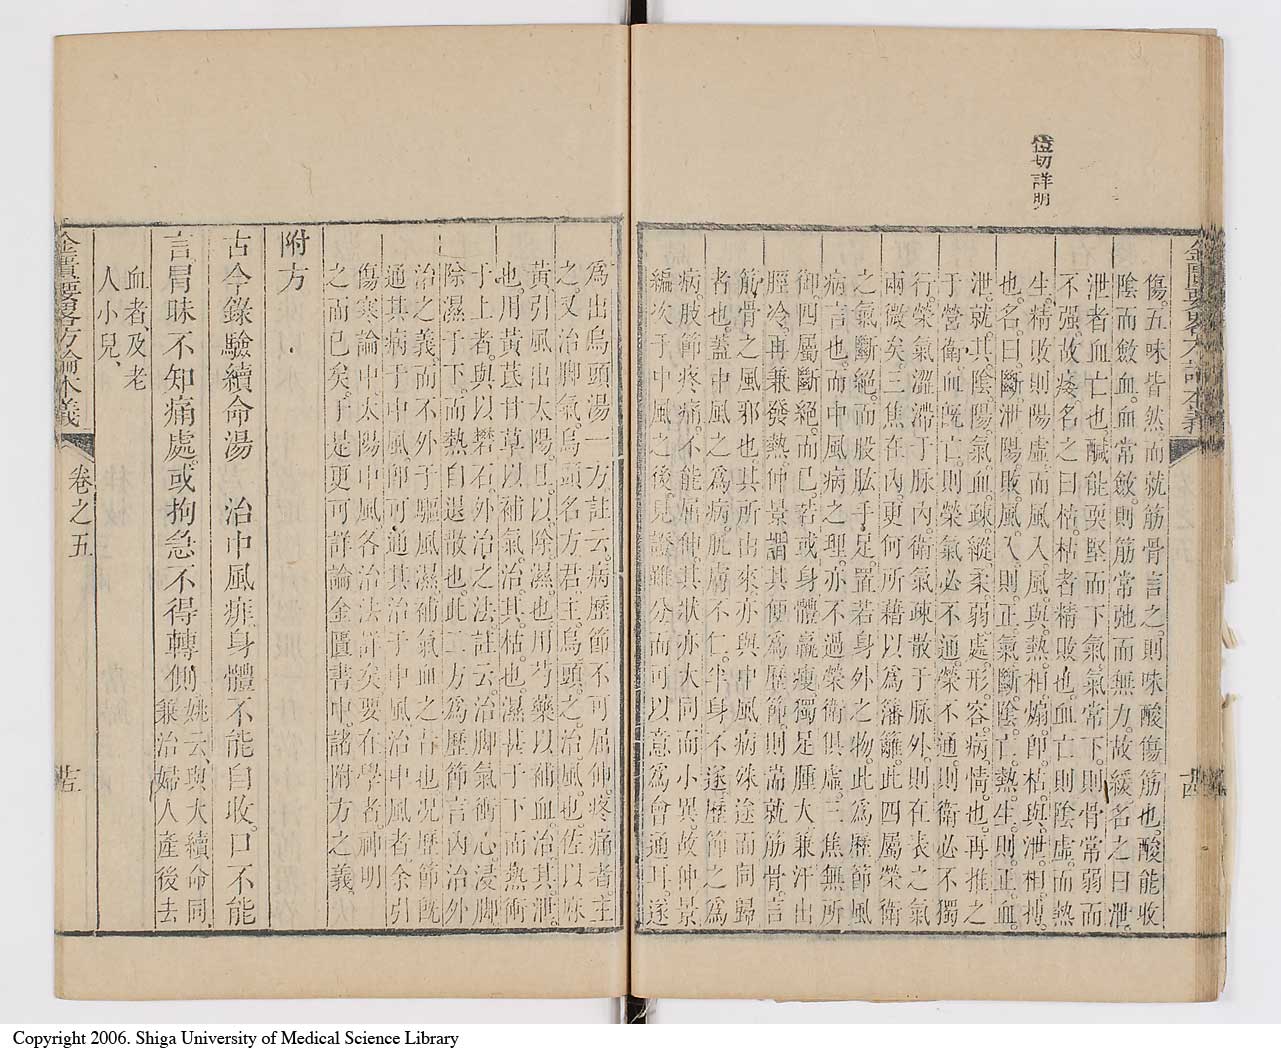 愷切詳明
傷五味皆然而就筋骨言之則味酸傷筋也酸能收
陰而斂血血常斂則筋常弛而無力故緩名之曰泄
泄者血亡也鹹能耎堅而下氣氣常下則骨常弱而
不强故痿名之曰枯枯者精敗也血亡則陰虛而熱
生精敗則陽虛而風入風與熱相煽卽枯與泄相摶
也名曰斷泄陽敗風入則正氣斷陰亡熱生則正血
泄就其陰陽氣血疎縱柔弱處形容病情也再推之
于營衛血旣亡則榮氣必不通榮不通則衛必不獨
行榮氣澀滯于脉內衛氣疎散于脉外則在表之氣
兩微矣三焦在內更何所藉以爲籓籬此四屬榮衛
之氣斷絕而股肱手足置若身外之物此爲歷節風
病言也而中風病之理亦不過榮衛俱虛三焦無所
御四屬斷絕而已若或身體羸瘦獨足腫大兼汗出
脛冷再兼發熱仲景謂其便爲歷節則當就筋骨言
筋骨之風邪也其所由來亦與中風病殊途而同歸
者也蓋中風之爲病肌膚不仁半身不遂歷節之爲
病肢節疼痛不能屈伸其狀亦大同而小異故仲景
編次于中風之後見證雖分而可以意爲會通耳遂
爲出烏頭湯一方註云病歷節不可屈伸疼痛者主
之又治脚氣烏頭名方君主烏頭之治風也佐以麻
黃引風出太陽已以除濕也用芍藥以補血治其泄
也用黃芪甘草以補氣治其枯也濕甚于下而熱衝
于上者與以礬石外治之法註云治脚氣衝心浸脚
除濕于下而熱自退散也此二方爲歷節言內治外
治之義而不外于驅風濕補氣血之旨也況歷節旣
通其病于中風卽可通其治于中風治中風者余引
傷寒論中太陽中風各治法詳矣要在學者神明
之而已矣于是更可詳論金匱書中諸附方之義
附方
古今錄驗續命湯 治中風痱身體不能自收口不能
言冒昧不知痛處或拘急不得轉側 姚云與大續命同
兼治婦人產後去
血者及老
人小兒
金匱要略方論本義 卷之五